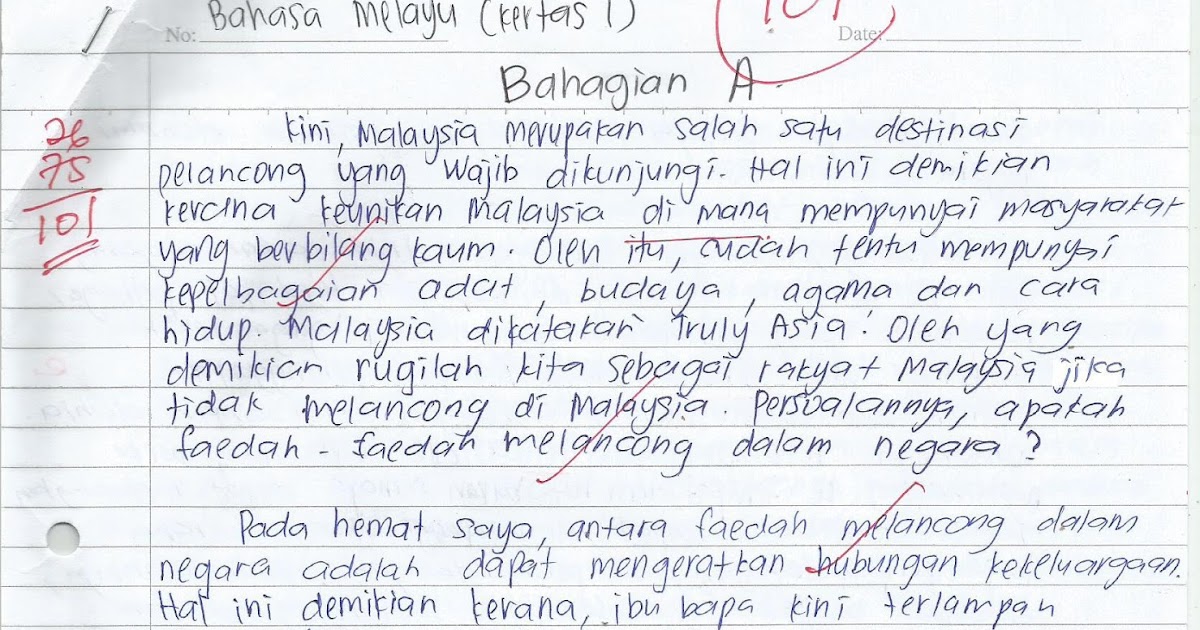 Bahasa Melayu (Kertas 1)
No:
Date:
101
Bahagian A.
26
75
101
Kini, Malaysia merupakan salah satu destinasi
pelancong yang wajib dikunjungi. Hal ini demikian
kerana keunikan Malaysia di mana mempunyai masyarakat
yang berbilang kaum. Oleh itu, sudah tentu mempunyai
kepelbagaian adat, budaya, agama dan cara
hidup. Malaysia dikatakan Truly Asia. Oleh yang
demikian rugilah kita sebagai rakyat Malaysia jika
tidak melancong di Malaysia. Persoalannya, apakah
faedah-faedah melancong dalam negara?
Pada hemat saya, antara faedah melancong dalam
negara adalah dapat mengeratkan hubungan kekeluargaan.
Hal ini demikian kerana, ibu bapa kini terlampau